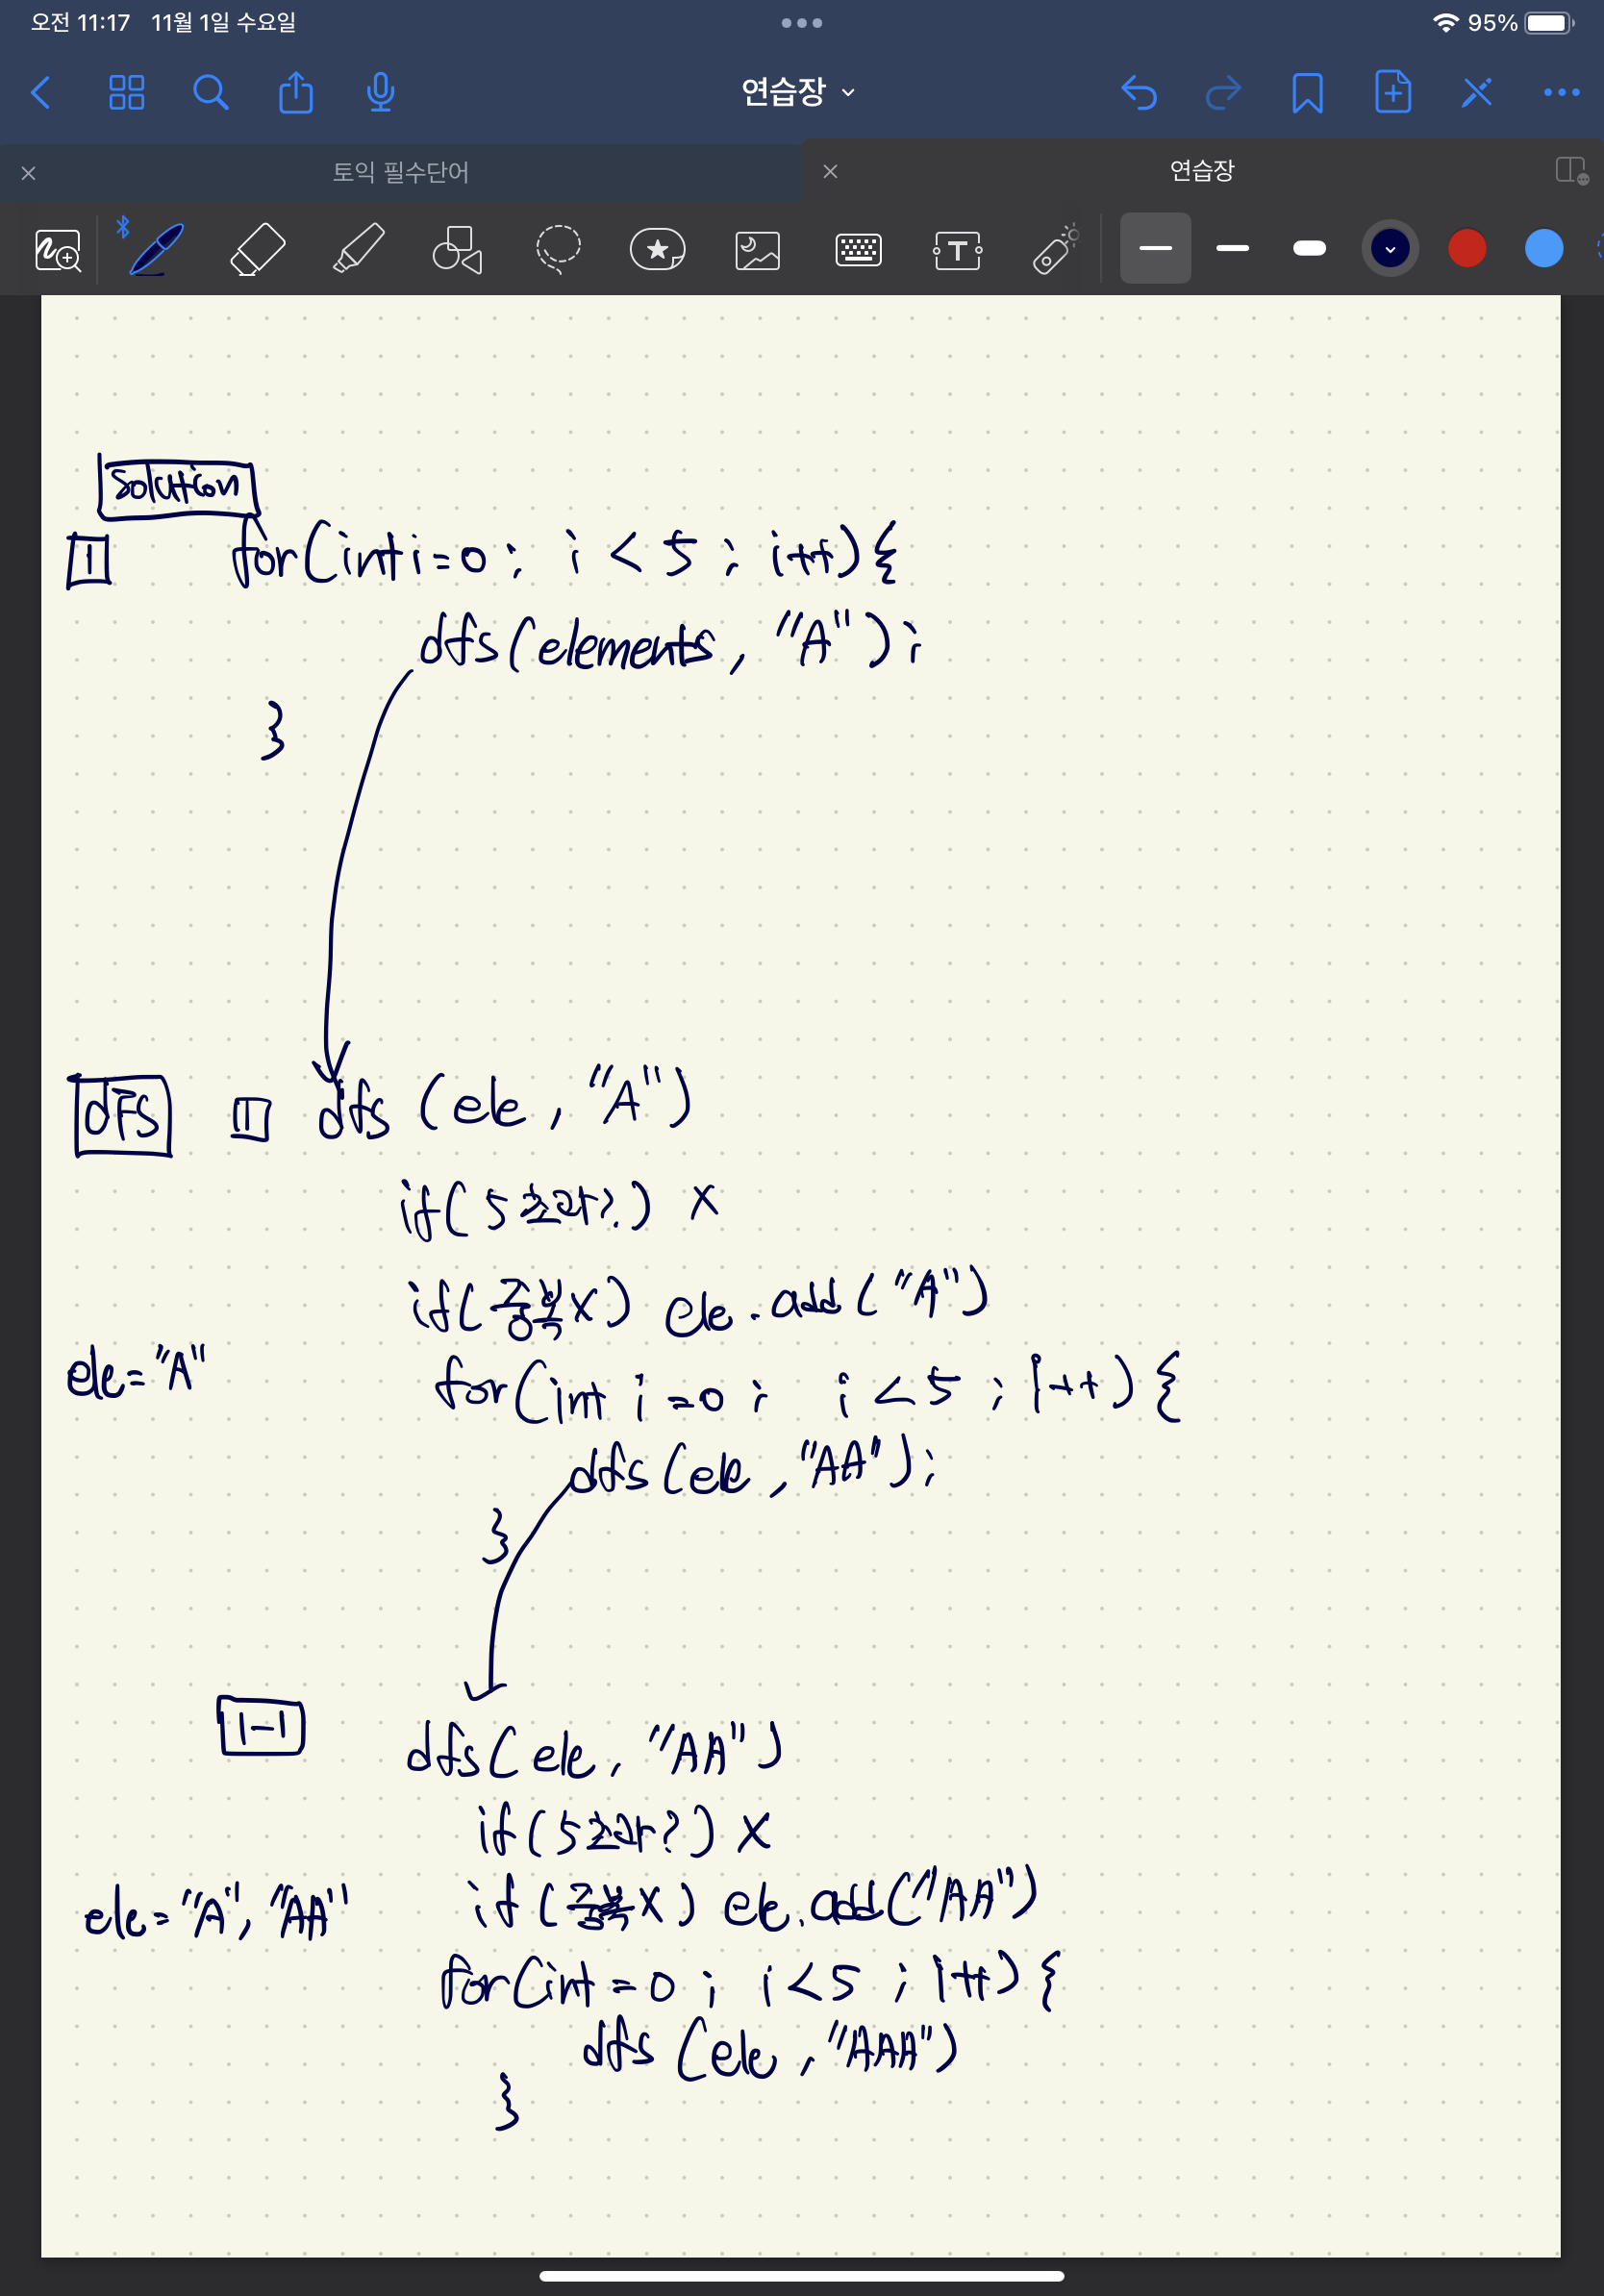 오전 11:17 11월 1일 수요일
95%
연습장
토익 필수단어
연습장
Solution
1 for(int i=0; i < 5 ; i++){
dfs(elements, "A");
}
dFS 1 dfs (ele, "A")
if( 5초과?) X
if(중복X) ele.add("A")
ele="A"
for(int i=0; i<5 ; i++){
dfs(ele, "AA");
}
1-1
dfs(ele, "AA")
if(5초과?) X
if(중복X) ele.add("AA")
ele="A", "AA"
for(int=0; i<5 ; i++){
dfs (ele, "AAA")
}